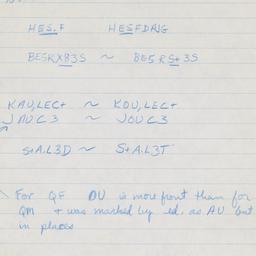 HES.F HESFDRIG
BESRXB3S ~ BESRS+3S
KAU,LEC+ ~ KOU,LEC+
JAUC3 ~ JOUC3
S+A.L3D ~ S+A.L3T
For QF OU is more front than for
QM + was marked by ed. as AU but
in places